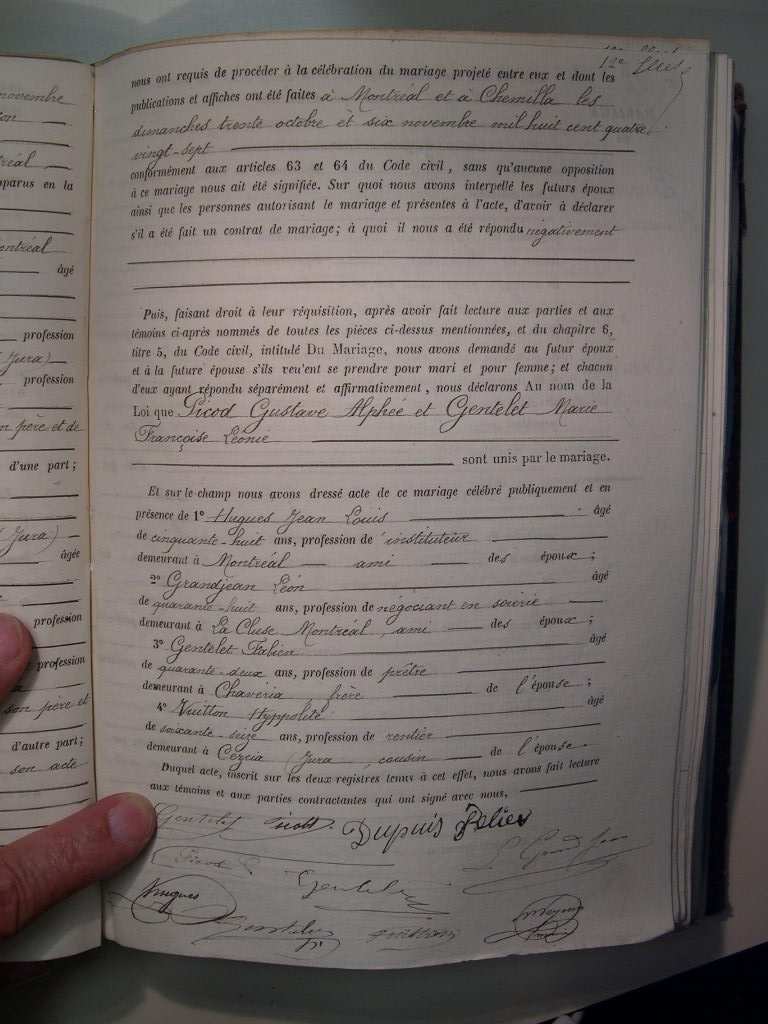 novembre
nous ont requis de procéder à la célébration du mariage projeté entre eux et dont les
publications et affiches ont été faites à Montréal et à Chemilla les
dimanches trente octobre et six novembre mil huit cent quatre
vingt-sept
conformément aux articles 63 et 64 du Code civil, sans qu'aucune opposition
à ce mariage nous ait été signifiée. Sur quoi nous avons interpellé les futurs époux
ainsi que les personnes autorisant le mariage et présentes à l'acte, d'avoir à déclarer
s'il a été fait un contrat de mariage; à quoi il nous a été répondu négativement
Puis, faisant droit à leur réquisition, après avoir fait lecture aux parties et aux
témoins ci-après nommés de toutes les pièces ci-dessus mentionnées, et du chapitre 6,
titre 5, du Code civil, intitulé Du Mariage, nous avons demandé au futur époux
et à la future épouse s'ils veulent se prendre pour mari et pour femme; et chacun
d'eux ayant répondu séparément et affirmativement, nous déclarons Au nom de la
Loi que Picod Gustave Alphée et Gentelet Marie
Françoise Léonie
sont unis par le mariage.
Et sur-le-champ nous avons dressé acte de ce mariage célébré publiquement et en
présence de 1º Hugues Jean Louis âgé
de cinquante-huit ans, profession de instituteur
demeurant à Montréal ami des époux;
2º Grandjean Léon âgé
de quarante-huit ans, profession de négociant en soierie
demeurant à La Cluse Montréal, ami des époux;
3º Gentelet Fabien âgé
de quarante-deux ans, profession de prêtre
demeurant à Chavéria, frère de l'épouse;
4º Vuitton Hyppolite âgé
de soixante-seize ans, profession de rentier
demeurant à Cézia (Jura), cousin de l'épouse.
Duquel acte, inscrit sur les deux registres tenus à cet effet, nous avons fait lecture
aux témoins et aux parties contractantes qui ont signé avec nous,
Dupuis Félix
Picod
Hugues
apparus en la
Montréal
âgé
profession
(Jura)
profession
père et de
d'une part;
(Jura)
âgée
profession
profession
son père et
d'autre part;
son acte